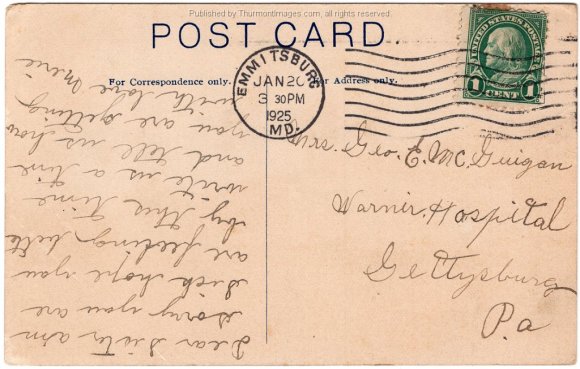 Published by ThurmontImages.com, all rights reserved
POST CARD.
For Correspondence only.
For Address only.
EMMITSBURG
JAN 20
3 30PM
1925
MD.
UNITED STATES POSTAGE
1 CENT 1
Mrs. Geo. E. McGuigan
Warner Hospital
Gettysburg
Pa
Dear Sister am
sorry you are
sick hope you
are feeling
by this time
write us a line
and tell us how
you are getting
with love